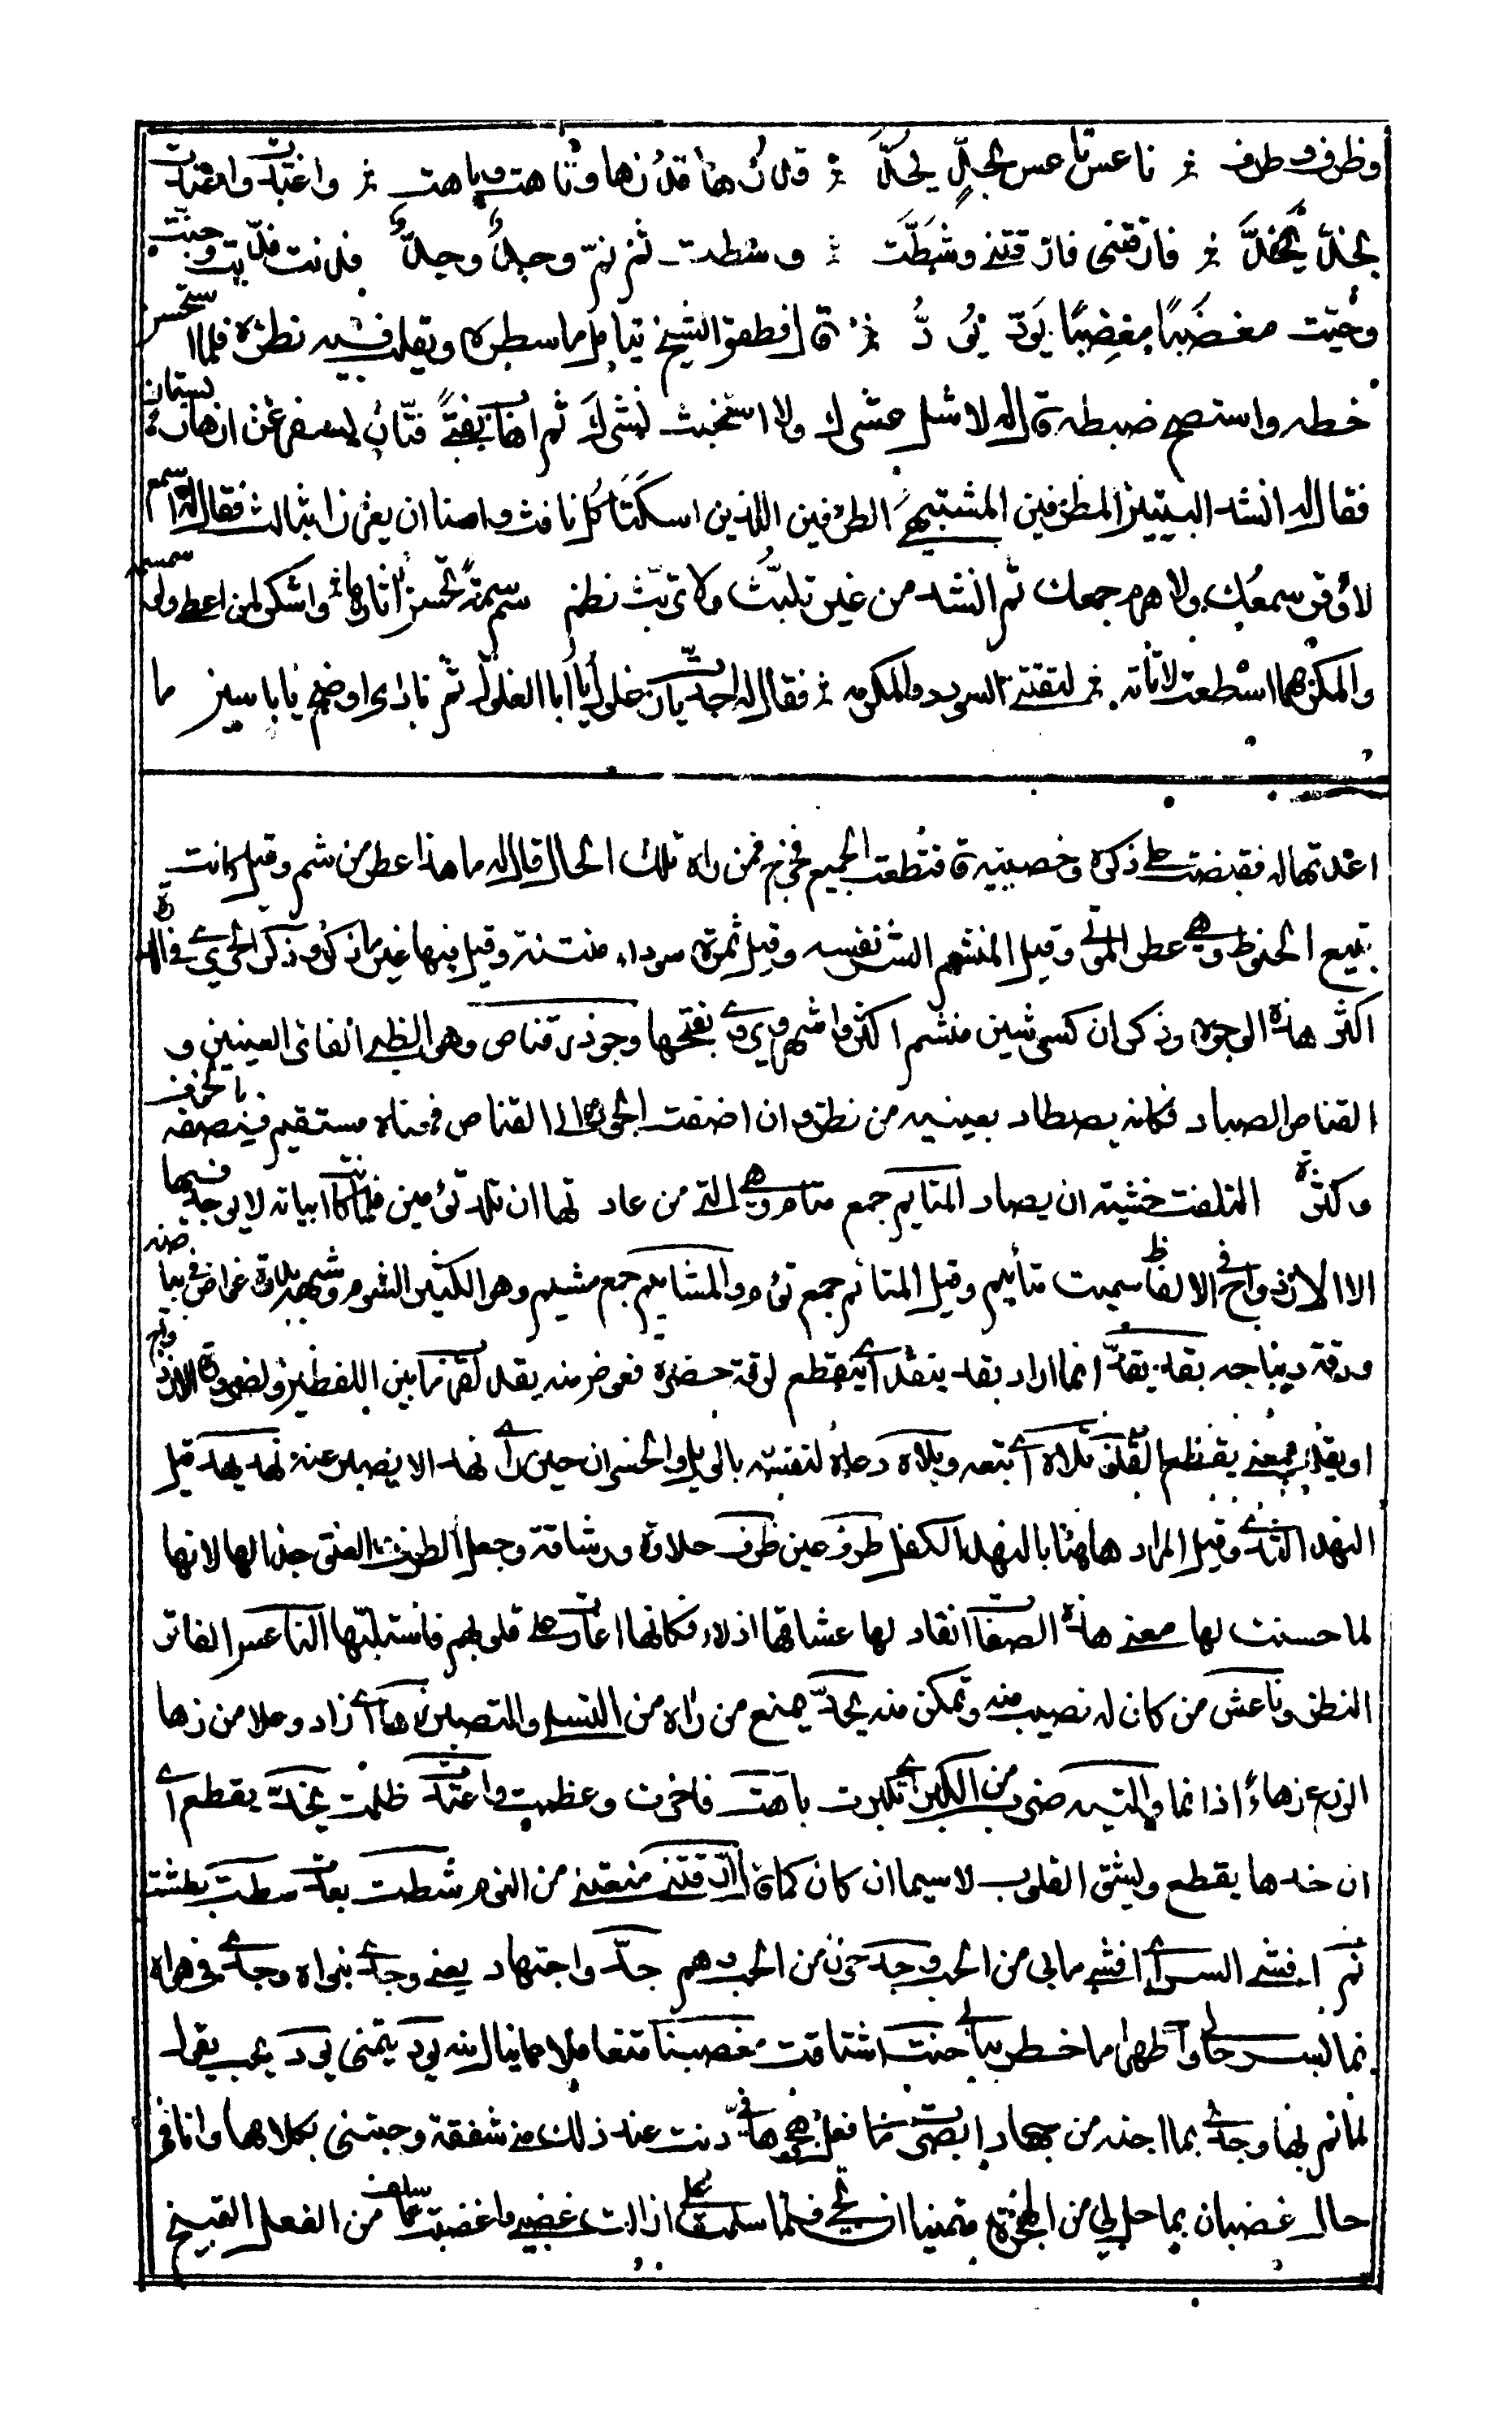 وظرف وطرف ناعس تاعس بحد يحد قدرها قد زها وتاهت وباهت واعتدت واغتدت
بخد يخد فارقتني فارقتني وشطت وسطت ثم نم وجد وجد فدنت فديت وحنت
وحيت مغضبا مغضيا يود يود قال فطفق الشيخ يتامل ما سطره ويقلب فيه نظره فلما استحسن
خطه واستصح ضبطه قال له لا شل عشرك ولا استخبث نشرك ثم اهاب بفتى فتان يسفر عن ازهار بستان
فقال له انشد البيتين المطرفين المشتبهي الطرفين اللذين اسكتا كل نافث وامنا ان يعززا بثالث فقال له اسمع
لا وقر سمعك ولا هزم جمعك ثم انشد من غير تلبث ولا تريث نظم سم سمة تحسن اثارها واشكر لمن اعطى ولو سمسمه
والمكر مهما اسطعت لا تاته لتقتني السودد والمكرمه فقال له اجدت يا زغلول يا ابا الغلول ثم نادى اوضح يا ياسين ما
اعدتها له فقبضت على ذكره وخصيتيه فقطعت الجميع فخرج فمن راه تلك الحال قال له ما هذا عطر من شم وقيل كانت
تبيع الحنوط وهي عطر الموتى وقيل المنشم الشر نفسه وقيل ثمرة سوداء منتنة وقيل فيها غير ما ذكر وذكر الحريري في الدرة
اكثر هذه الوجوه وذكر ان كسر شين منشم اكثر واشهر ويروى بفتحها وجوذر قناص وهو الظبي الفاتر العينين و
القناص الصياد فكانه يصطاد بعينيه من نظره وان اضفت الجوذر الى القناص فمعناه مستقيم فيصفه بالخوف
وكثرة التلفت خشية ان يصاد المتايم جمع متام وهي التي من عادتها ان تلد توءمين فلما كانت ابياته لا يوجد فيها
الا الازدواج في الالفاظ سميت متايم وقيل المتائم جمع توءم والمشايم جمع مشيم وهو الكثير الشوم
ورقة ديباجه بقد يقد انما اراد بقد ينقد اي ينقطع لرقة خصره فعوض منه يقد لقرب ما بين اللفظين ولضرورة الازدواج
او يقد بمعنى يقطع القلوب تلاه اي تبعه ويلاه دعاء لنفسه بالويل والخسران حين راى نهد الا يصبر عنه نهد يهد قيل
النهد الثدي وقيل المراد هاهنا بالنهد الكفل طرف عين ظرف حلاوة ورشاقة وجعل الطرف العنق جندا لها لانها
لما حسنت لها معنى هذه الصفات انقاد لها عشاقها اذلاء فكانها اغارت على قلوبهم فاستلبتها الناعس الفاتر
النظر وتاعش من كان له نصيب منه وتمكن منه يحد يمنع من راه من التسلي والتصبر زها اي زاد وعلا من زها
الزرع زهاء اذا نما والتيه ضرب من الكبر اي تكبرت باهت فاخرت وعظمت واعتدت ظلمت يخد يقطع اي
ان خدها يقطع ويشق القلوب لا سيما ان كان ارقتني منعتني من النوم شطت بعدت سطت بطشت
نم افشى السر اي افشى ما بي من الحب وجد حزن من الحب وهم جد واجتهاد يعني وجدي بنواه وجدي في هواه
نما لسر حالي واظهر ما خطر ببالي حنت اشتاقت مغضيا متغافلا عما ينال منه يود يتمنى يود يحب يقول
لما نم لها وجدي بما اجنه من دنت عند ذلك منه شفقة وحيتني بكلامها وانا في
حال غضبان بما حل بي من الهجر متمنيا ان تحيي فلما سلمت علي ازالت غضبي واغضيت عما سلف من الفعل القبيح